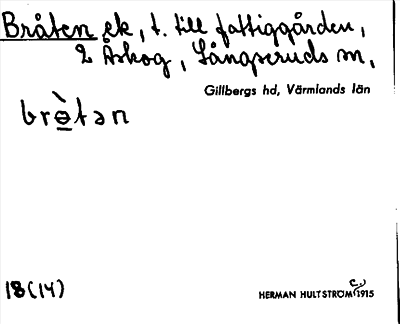 Bråten ek, t. till fattiggården,
2 Åskog, Långseruds sn,
Gillbergs hd, Värmlands län
brɵ̀tən
18(14)
HERMAN HULTSTRÖM 1915